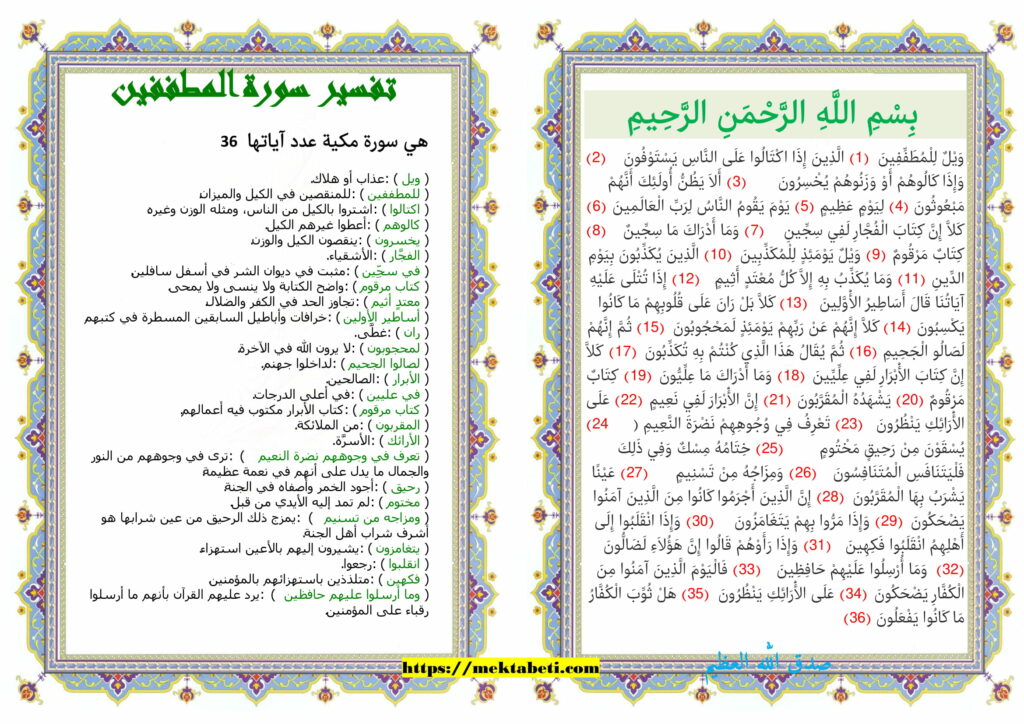 بِسْمِ اللَّهِ الرَّحْمَنِ الرَّحِيمِ
وَيْلٌ لِلْمُطَفِّفِينَ (1) الَّذِينَ إِذَا اكْتَالُوا عَلَى النَّاسِ يَسْتَوْفُونَ (2)
وَإِذَا كَالُوهُمْ أَوْ وَزَنُوهُمْ يُخْسِرُونَ (3) أَلاَ يَظُنُّ أُولَئِكَ أَنَّهُمْ
مَبْعُوثُونَ (4) لِيَوْمٍ عَظِيمٍ (5) يَوْمَ يَقُومُ النَّاسُ لِرَبِّ الْعَالَمِينَ (6)
كَلاَّ إِنَّ كِتَابَ الْفُجَّارِ لَفِي سِجِّينٍ (7) وَمَا أَدْرَاكَ مَا سِجِّينٌ (8)
كِتَابٌ مَرْقُومٌ (9) وَيْلٌ يَوْمَئِذٍ لِلْمُكَذِّبِينَ (10) الَّذِينَ يُكَذِّبُونَ بِيَوْمِ
الدِّينِ (11) وَمَا يُكَذِّبُ بِهِ إِلاَّ كُلُّ مُعْتَدٍ أَثِيمٍ (12) إِذَا تُتْلَى عَلَيْهِ
آيَاتُنَا قَالَ أَسَاطِيرُ الأَوَّلِينَ (13) كَلاَّ بَلْ رَانَ عَلَى قُلُوبِهِمْ مَا كَانُوا
يَكْسِبُونَ (14) كَلاَّ إِنَّهُمْ عَنْ رَبِّهِمْ يَوْمَئِذٍ لَمَحْجُوبُونَ (15) ثُمَّ إِنَّهُمْ
لَصَالُو الْجَحِيمِ (16) ثُمَّ يُقَالُ هَذَا الَّذِي كُنْتُمْ بِهِ تُكَذِّبُونَ (17) كَلاَّ
إِنَّ كِتَابَ الأَبْرَارِ لَفِي عِلِّيِّينَ (18) وَمَا أَدْرَاكَ مَا عِلِّيُّونَ (19) كِتَابٌ
مَرْقُومٌ (20) يَشْهَدُهُ الْمُقَرَّبُونَ (21) إِنَّ الأَبْرَارَ لَفِي نَعِيمٍ (22) عَلَى
الأَرَائِكِ يَنْظُرُونَ (23) تَعْرِفُ فِي وُجُوهِهِمْ نَضْرَةَ النَّعِيمِ (24)
يُسْقَوْنَ مِنْ رَحِيقٍ مَخْتُومٍ (25) خِتَامُهُ مِسْكٌ وَفِي ذَلِكَ
فَلْيَتَنَافَسِ الْمُتَنَافِسُونَ (26) وَمِزَاجُهُ مِنْ تَسْنِيمٍ (27) عَيْنًا
يَشْرَبُ بِهَا الْمُقَرَّبُونَ (28) إِنَّ الَّذِينَ أَجْرَمُوا كَانُوا مِنَ الَّذِينَ آمَنُوا
يَضْحَكُونَ (29) وَإِذَا مَرُّوا بِهِمْ يَتَغَامَزُونَ (30) وَإِذَا انْقَلَبُوا إِلَى
أَهْلِهِمُ انْقَلَبُوا فَكِهِينَ (31) وَإِذَا رَأَوْهُمْ قَالُوا إِنَّ هَؤُلاَءِ لَضَالُّونَ
(32) وَمَا أُرْسِلُوا عَلَيْهِمْ حَافِظِينَ (33) فَالْيَوْمَ الَّذِينَ آمَنُوا مِنَ
الْكُفَّارِ يَضْحَكُونَ (34) عَلَى الأَرَائِكِ يَنْظُرُونَ (35) هَلْ ثُوِّبَ الْكُفَّارُ
مَا كَانُوا يَفْعَلُونَ (36)
صدق الله العظيم
تفسير سورة المطففين
هي سورة مكية عدد آياتها 36
( ويل ) :عذاب أو هلاك.
( للمطففين ) :للمنقصين في الكيل والميزان.
( اكتالوا ) :اشتروا بالكيل من الناس، ومثله الوزن وغيره
( كالوهم ) :أعطوا غيرهم الكيل.
( يخسرون ) :ينقصون الكيل والوزن.
( الفجّار ) :الأشقياء.
( في سجّين ) :مثبت في ديوان الشر في أسفل سافلين.
( كتاب مرقوم ) :واضح الكتابة ولا ينسى ولا يمحى.
( معتدٍ أثيم ) :تجاوز الحد في الكفر والضلال.
( أساطير الأولين ) :خرافات وأباطيل السابقين المسطرة في كتبهم
( ران ) :غطّى.
( لمحجوبون ) :لا يرون الله في الآخرة.
( لصالوا الجحيم ) :لداخلوا جهنم.
( الأبرار ) :الصالحين.
( في عليين ) :في أعلى الدرجات.
( كتاب مرقوم ) :كتاب الأبرار مكتوب فيه أعمالهم.
( المقربون ) :من الملائكة.
( الأرائك ) :الأسرَّة.
( تعرف في وجوههم نضرة النعيم ) :ترى في وجوههم من النور
والجمال ما يدل على أنهم في نعمة عظيمة.
( رحيق ) :أجود الخمر وأصفاه في الجنة.
( مختوم ) :لم تمد إليه الأيدي من قبل.
( ومزاجه من تسنيم ) :يمزج ذلك الرحيق من عين شرابها هو
أشرف شراب أهل الجنة.
( يتغامزون ) :يشيرون إليهم بالأعين استهزاء.
( انقلبوا ) :رجعوا.
( فكهين ) :متلذذين باستهزائهم بالمؤمنين.
( وما أرسلوا عليهم حافظين ) :يرد عليهم القرآن بأنهم ما أرسلوا
رقباء على المؤمنين.
https://mektabeti.com